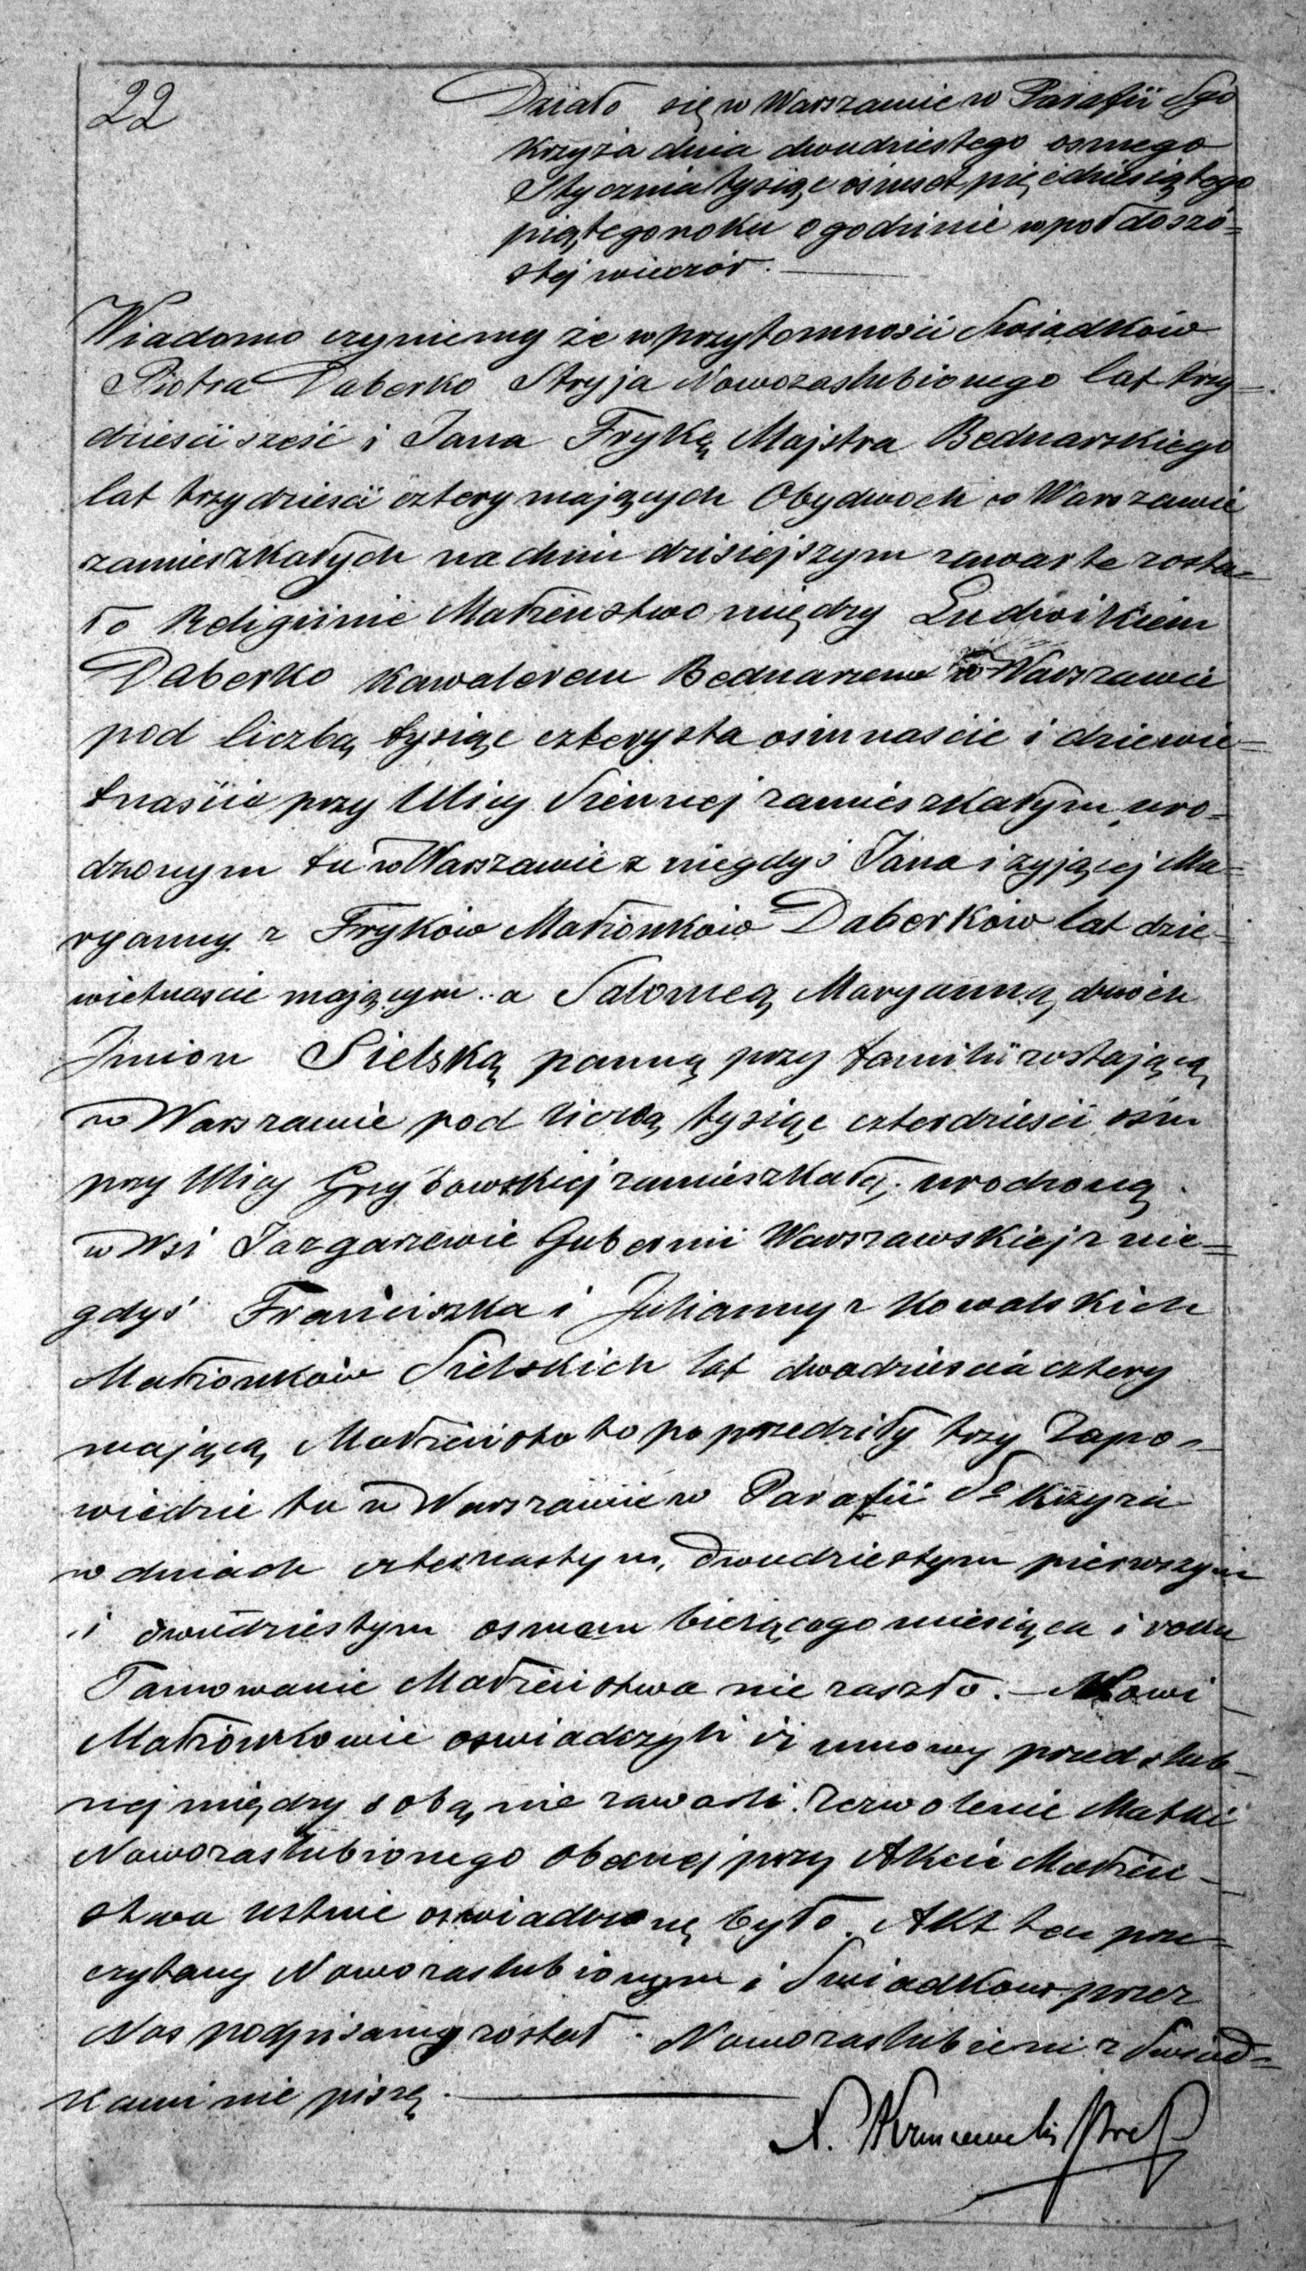 22
Działo się w Warszawie w Parafii Sgo
Krzyża dnia dwudziestego osmego
Stycznia tysiąc osmset pięćdziesiątego
piątego roku o godzinie wpoł do szó=
stej wieczór.
Wiadomo czyniemy że w przytomności Swiadków
Piotra Daberko Stryja Nowozaslubionego lat trzy=
dzieści sześć i Jana Fryką Majstra Bednarskiego
lat trzydzieści cztery mających Obydwoch w Warszawie
zamieszkałych na dniu dzisiejszym zawarte zosta=
ło Religijnie Małżeństwo między Ludwikiem
Daberko Kawalerem Bednarzem w Warszawie
pod liczbą tysiąc czterysta ośmnaście i dziewię=
tnaście przy Ulicy Siennej zamieszkałym, uro=
dzonym tu w Warszawie z niegdyś Jana i żyjącej Ma=
ryanny z Fryków Małżonków Daberków lat dzie=
wietnaście mającym. a Salomeą Maryanną dwóch
Jmion Sielską panną przy familii zostającą
w Warszawie pod liczbą tysiąc czterdzieści ośm
przy Ulicy Grzybowskiej zamieszkałą, urodzoną
w Wsi Jazgarzewie Gubernii Warszawskiej z nie=
gdyś Franciszka i Julianny z Kowalskich
Małżonków Sielskich lat dwadzieścia cztery
mającą Małżeństwo to poprzedziły trzy Zapo=
wiedzie tu w Warszawie w Parafii So Krzyża
w dniach czternastym, dwudziestym pierwszym
i dwudziestym osmem bieżącego miesiąca i roku
Tamowanie Małżeństwa nie zaszło. — Nowi
Małżonkowie oswiadczyli iż umowy przedślub=
nej między sobą nie zawarli. Zezwolenie Matki
Nowozaslubionego obecnej przy Akcie Małżeń=
stwa ustnie oswiadczone było. Akt ten prze=
czytany Nowozaslubionym i Swiadkom przez
Nas podpisany został. Nowozaslubieni z Swiad=
kami nie piszą.